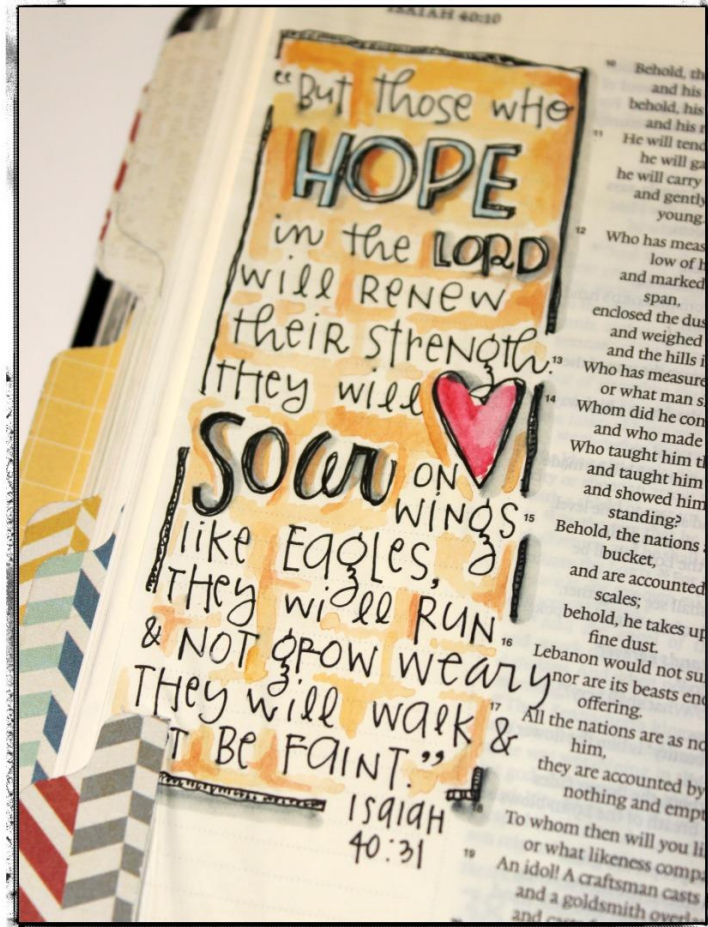 ISAIAH 40:10
"But those who
HOPE
in the LORD
will RENEW
their strength.
They will
soar ON
WINGS
like Eagles,
They will RUN
& NOT grow weary
They will walk &
T BE FAINT."
Isaiah
40:31
10 Behold, th
and his
behold, his
and his r
11 He will tend
he will ga
he will carry
and gently
young.
12 Who has meas
low of h
and marked
span,
enclosed the dus
and weighed
and the hills i
13 Who has measure
or what man s
14 Whom did he con
and who made
Who taught him th
and taught him
and showed him
standing?
15 Behold, the nations
bucket,
and are accounted
scales;
behold, he takes up
fine dust.
16 Lebanon would not su
nor are its beasts eno
offering.
17 All the nations are as no
him,
they are accounted by
nothing and empt
18 To whom then will you li
or what likeness compa
19 An idol! A craftsman casts
and a goldsmith overla